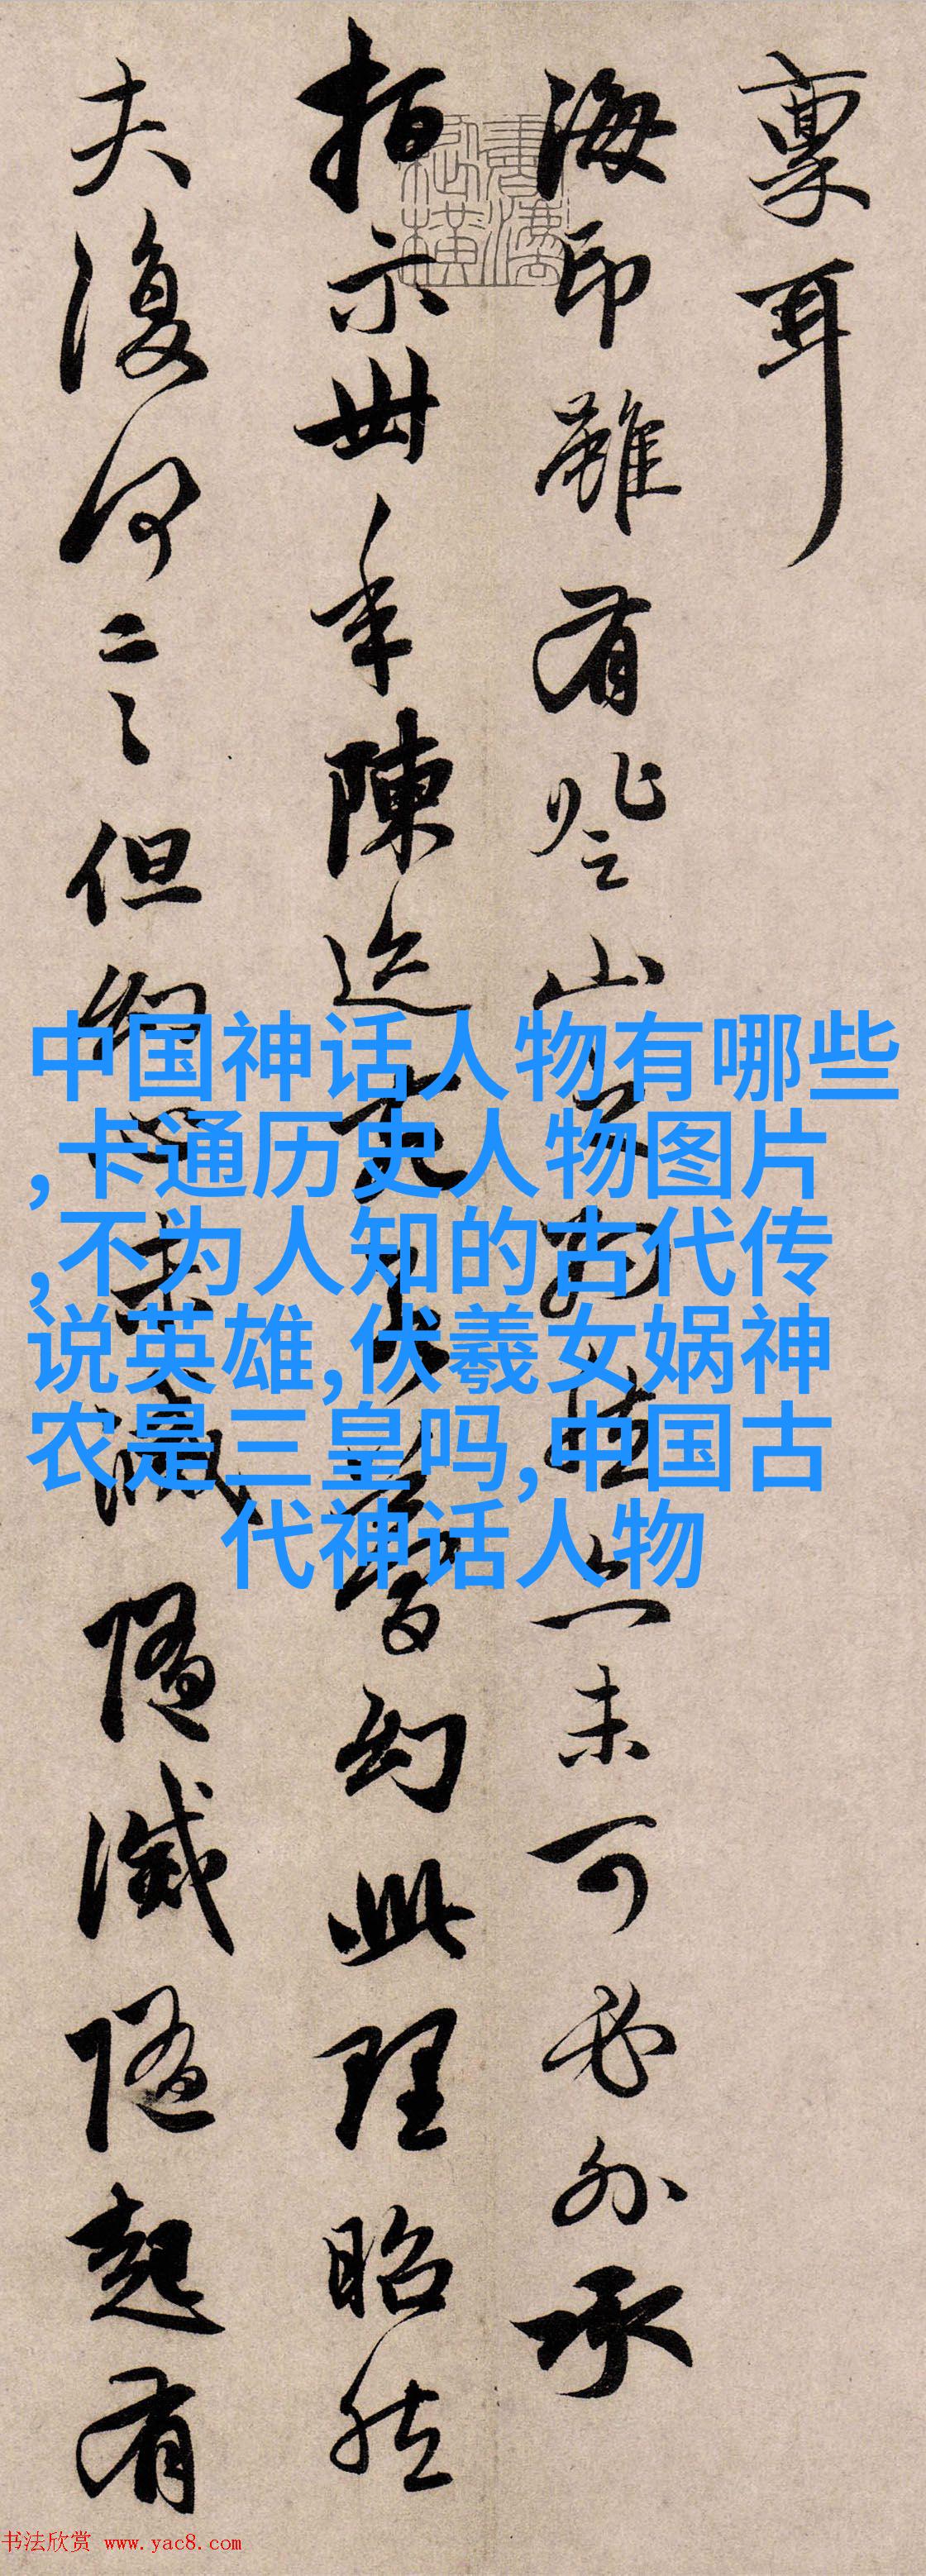 稟耳
海印雖有登山之約亦未可必外承
指示卅年陳迹夢幻此理昭然
夫復何言但心未滅隨滅隨起有
中国神话人物有哪些
,卡通历史人物图片
,不为人知的古代传
说英雄,伏羲女娲神
农是三皇吗,中国古
代神话人物
书法欣赏 www.yac8.com